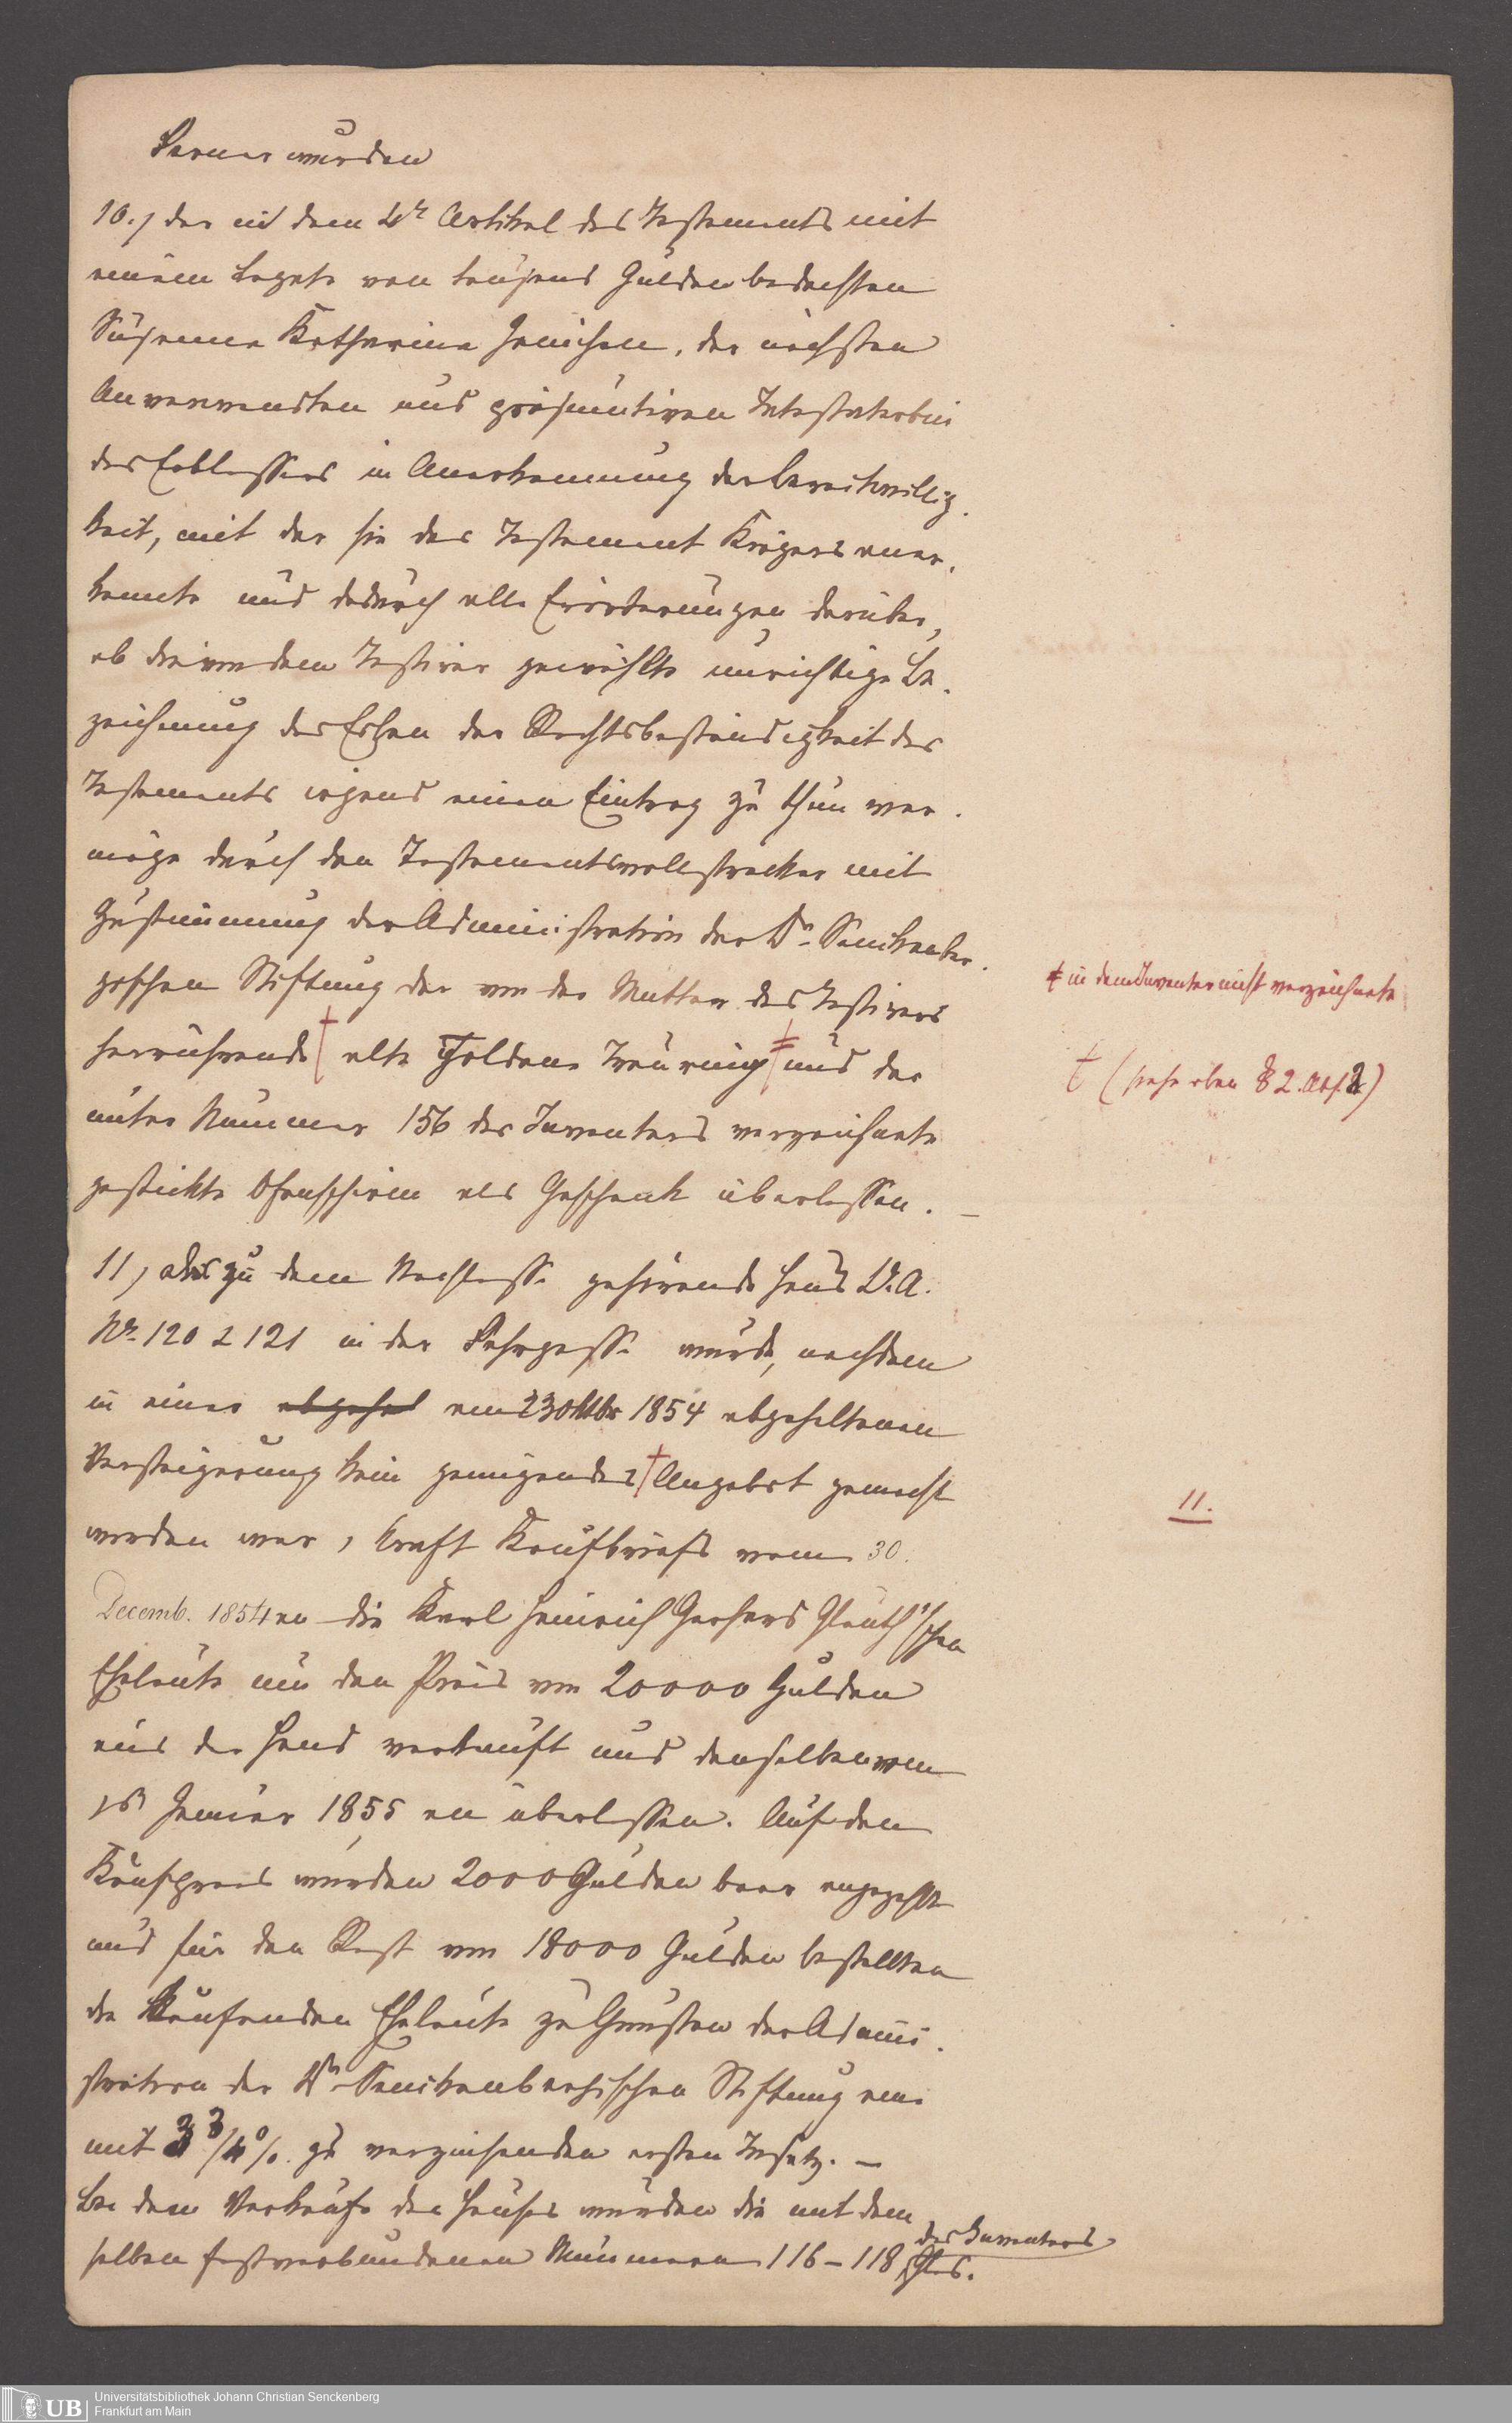 Ferner wurden
10.) der in dem 4ten Artikel des Testaments mit
einem Legate von tausend Gulden bedachten
Susanna Katharina Hänichen, der nächsten
Anverwandten und präsumtiven Intestaterbin
des Erblassers in Anerkennung der Bereitwillig-
keit, mit der sie das Testament Krögers aner-
kannte und dadurch alle Erörterungen darüber,
ob die von dem Testirer gewählte unrichtige Be-
zeichnung des Erben der Rechtsbeständigkeit des
Testaments irgend einen Eintrag zu thun ver-
möge durch den Testamentsvollstrecker mit
Zustimmung der Administration der Dr. Senckenber-
gischen Stiftung der von der Mutter des Testirers
herrührende † alte goldene Trauring ‡ und der
unter Nummer 156 des Inventars verzeichnete
gestickte Ofenschirm als Geschenk überlassen. —
‡ in dem Inventar nicht verzeichnete
† (siehe oben § 2. Abs. 2)
11) das zu dem Nachlasse gehörende Haus Lit. A.
Nr. 120 & 121 in der Fahrgasse wurde, nachdem
in einer abgehal am 23 Oktbr 1854 abgehaltenen
Versteigerung kein genügendes † Angebot gemacht
worden war, kraft Kaufbriefs vom 30.
11.
Decemb. 1854 an die Karl Heinrich Gerhard 'schen
Eheleute um den Preis von 20000 Gulden
aus der Hand verkauft und denselben vom
Januar 1855 an überlassen. Auf den
Kaufpreis wurden 2000 Gulden baar angezahlt
und für den Rest von 18000 Gulden bestellten
die kaufenden Eheleute zu Gunsten der Admini-
stration der Dr. Senckenbergischen Stiftung eine
mit 3 3/4 %. zu verzinsenden ersten Insatz. —
Bei dem Verkaufe des Hauses wurden die mit dem-
selben festverbundenen Nummern 116 – 118 des Inventars